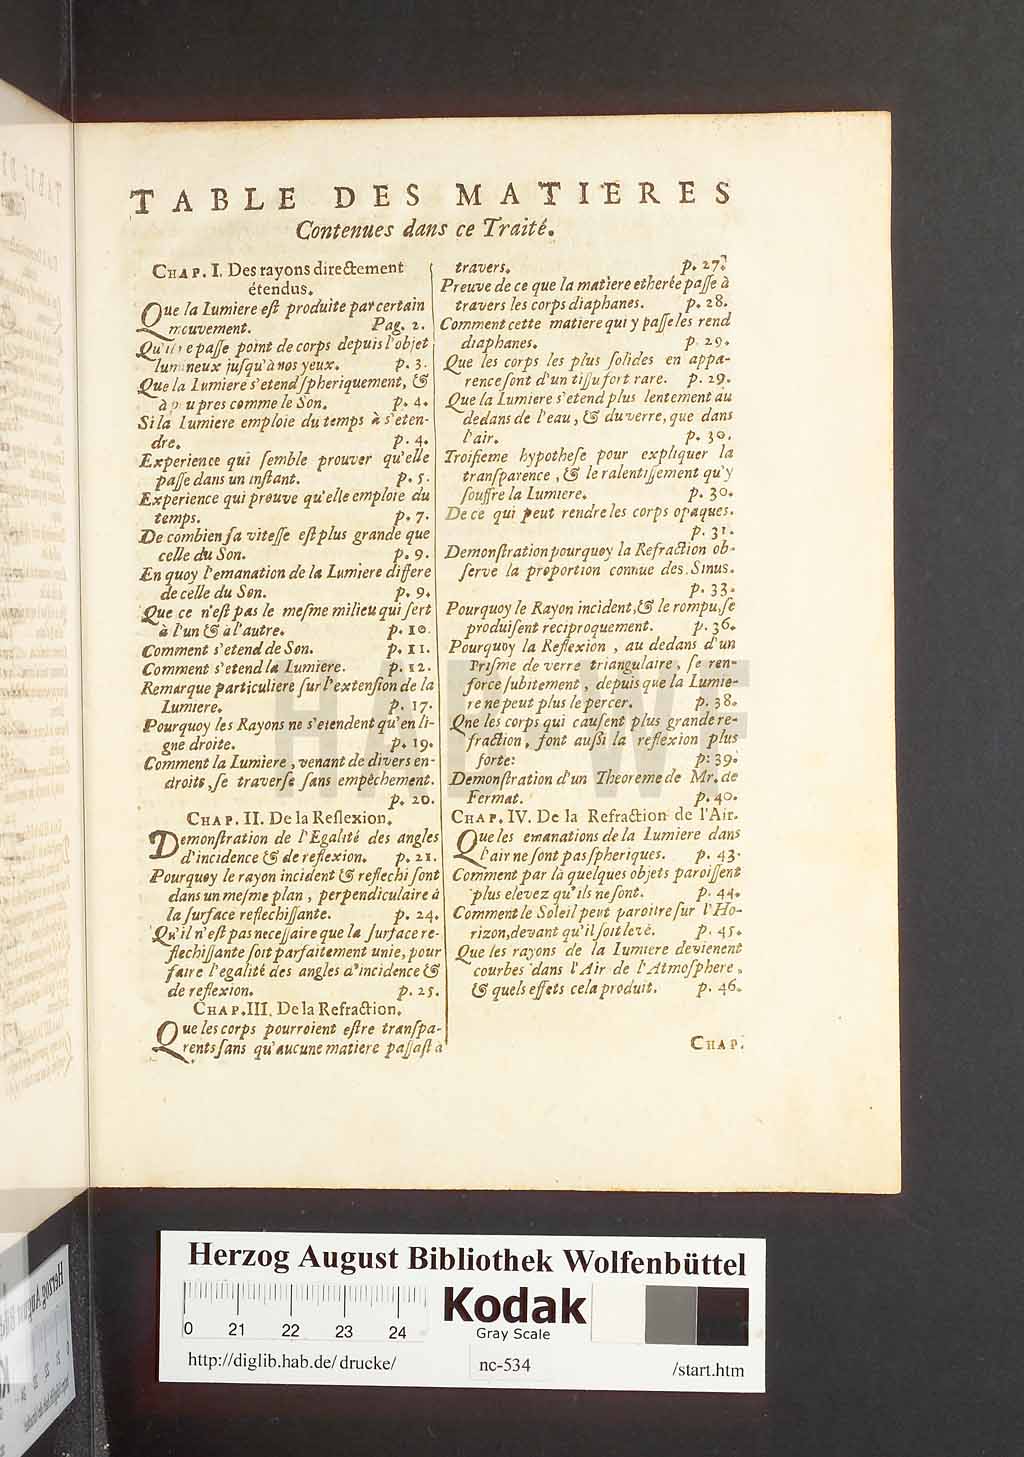 TABLE DES MATIERES
Contenues dans ce Traité.
CHAP. I. Des rayons directement
étendus.
Que la Lumiere eſt produite par certain
mouvement. Pag. 2.
Qu'il ne paſſe point de corps depuis l'objet
lumineux juſqu'à nos yeux. p. 3.
Que la Lumiere s'etend ſpheriquement, &
à peu pres comme le Son. p. 4.
Si la Lumiere emploie du temps à s'eten-
dre. p. 4.
Experience qui ſemble prouver qu'elle
paſſe dans un inſtant. p. 5.
Experience qui preuve qu'elle emploie du
temps. p. 7.
De combien ſa viteſſe eſt plus grande que
celle du Son. p. 9.
En quoy l'emanation de la Lumiere differe
de celle du Son. p. 9.
Que ce n'eſt pas le meſme milieu qui ſert
à l'un & à l'autre. p. 10.
Comment s'etend de Son. p. 11.
Comment s'etend la Lumiere. p. 12.
Remarque particuliere ſur l'extenſion de la
Lumiere. p. 17.
Pourquoy les Rayons ne s'etendent qu'en li-
gne droite. p. 19.
Comment la Lumiere, venant de divers en-
droits, ſe traverſe ſans empêchement.
p. 20.
CHAP. II. De la Reflexion.
Demonſtration de l'Egalité des angles
d'incidence & de reflexion. p. 21.
Pourquoy le rayon incident & reflechi ſont
dans un meſme plan, perpendiculaire à
la ſurface reflechiſſante. p. 24.
Qu'il n'eſt pas neceſſaire que la ſurface re-
flechiſſante ſoit parfaitement unie, pour
faire l'egalité des angles d'incidence &
de reflexion. p. 25.
CHAP. III. De la Refraction.
Que les corps pourroient eſtre tranſpa-
rents ſans qu'aucune matiere paſſaſt a
travers. p. 27.
Preuve de ce que la matiere etherée paſſe à
travers les corps diaphanes. p. 28.
Comment cette matiere qui y paſſe les rend
diaphanes. p. 29.
Que les corps les plus ſolides en appa-
rence ſont d'un tiſſu fort rare. p. 29.
Que la Lumiere s'etend plus lentement au
dedans de l'eau, & du verre, que dans
l'air. p. 30.
Troiſieme hypotheſe pour expliquer la
tranſparence, & le ralentiſſement qu'y
ſouffre la Lumiere. p. 30.
De ce qui peut rendre les corps opaques.
p. 31.
Demonſtration pourquoy la Refraction ob-
ſerve la proportion connue des Sinus.
p. 33.
Pourquoy le Rayon incident, & le rompu, ſe
produiſent reciproquement. p. 36.
Pourquoy la Reflexion, au dedans d'un
Priſme de verre triangulaire, ſe ren-
force ſubitement, depuis que la Lumie-
re ne peut plus le percer. p. 38.
Qne les corps qui cauſent plus grande re-
fraction, font auſſi la reflexion plus
forte: p: 39.
Demonſtration d'un Theoreme de Mr. de
Fermat. p. 40.
CHAP. IV. De la Refraction de l'Air.
Que les emanations de la Lumiere dans
l'air ne ſont pas ſpheriques. p. 43.
Comment par là quelques objets paroiſſent
plus elevez qu'ils ne ſont. p. 44.
Comment le Soleil peut paroitre ſur l'Ho-
rizon, devant qu'il ſoit levé. p. 45.
Que les rayons de la Lumiere devienent
courbes dans l'Air de l'Atmoſphere,
& quels effets cela produit. p. 46.
CHAP.
HAB WF
Herzog August Bibliothek Wolfenbüttel
0 21 22 23 24
Kodak
Gray Scale
http://diglib.hab.de/drucke/ nc-534 /start.htm